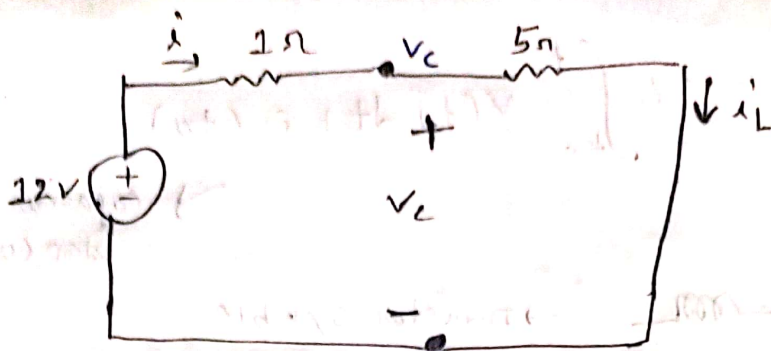 i 1Ω Vc 5Ω
iL
+
12V + -
Vc
-